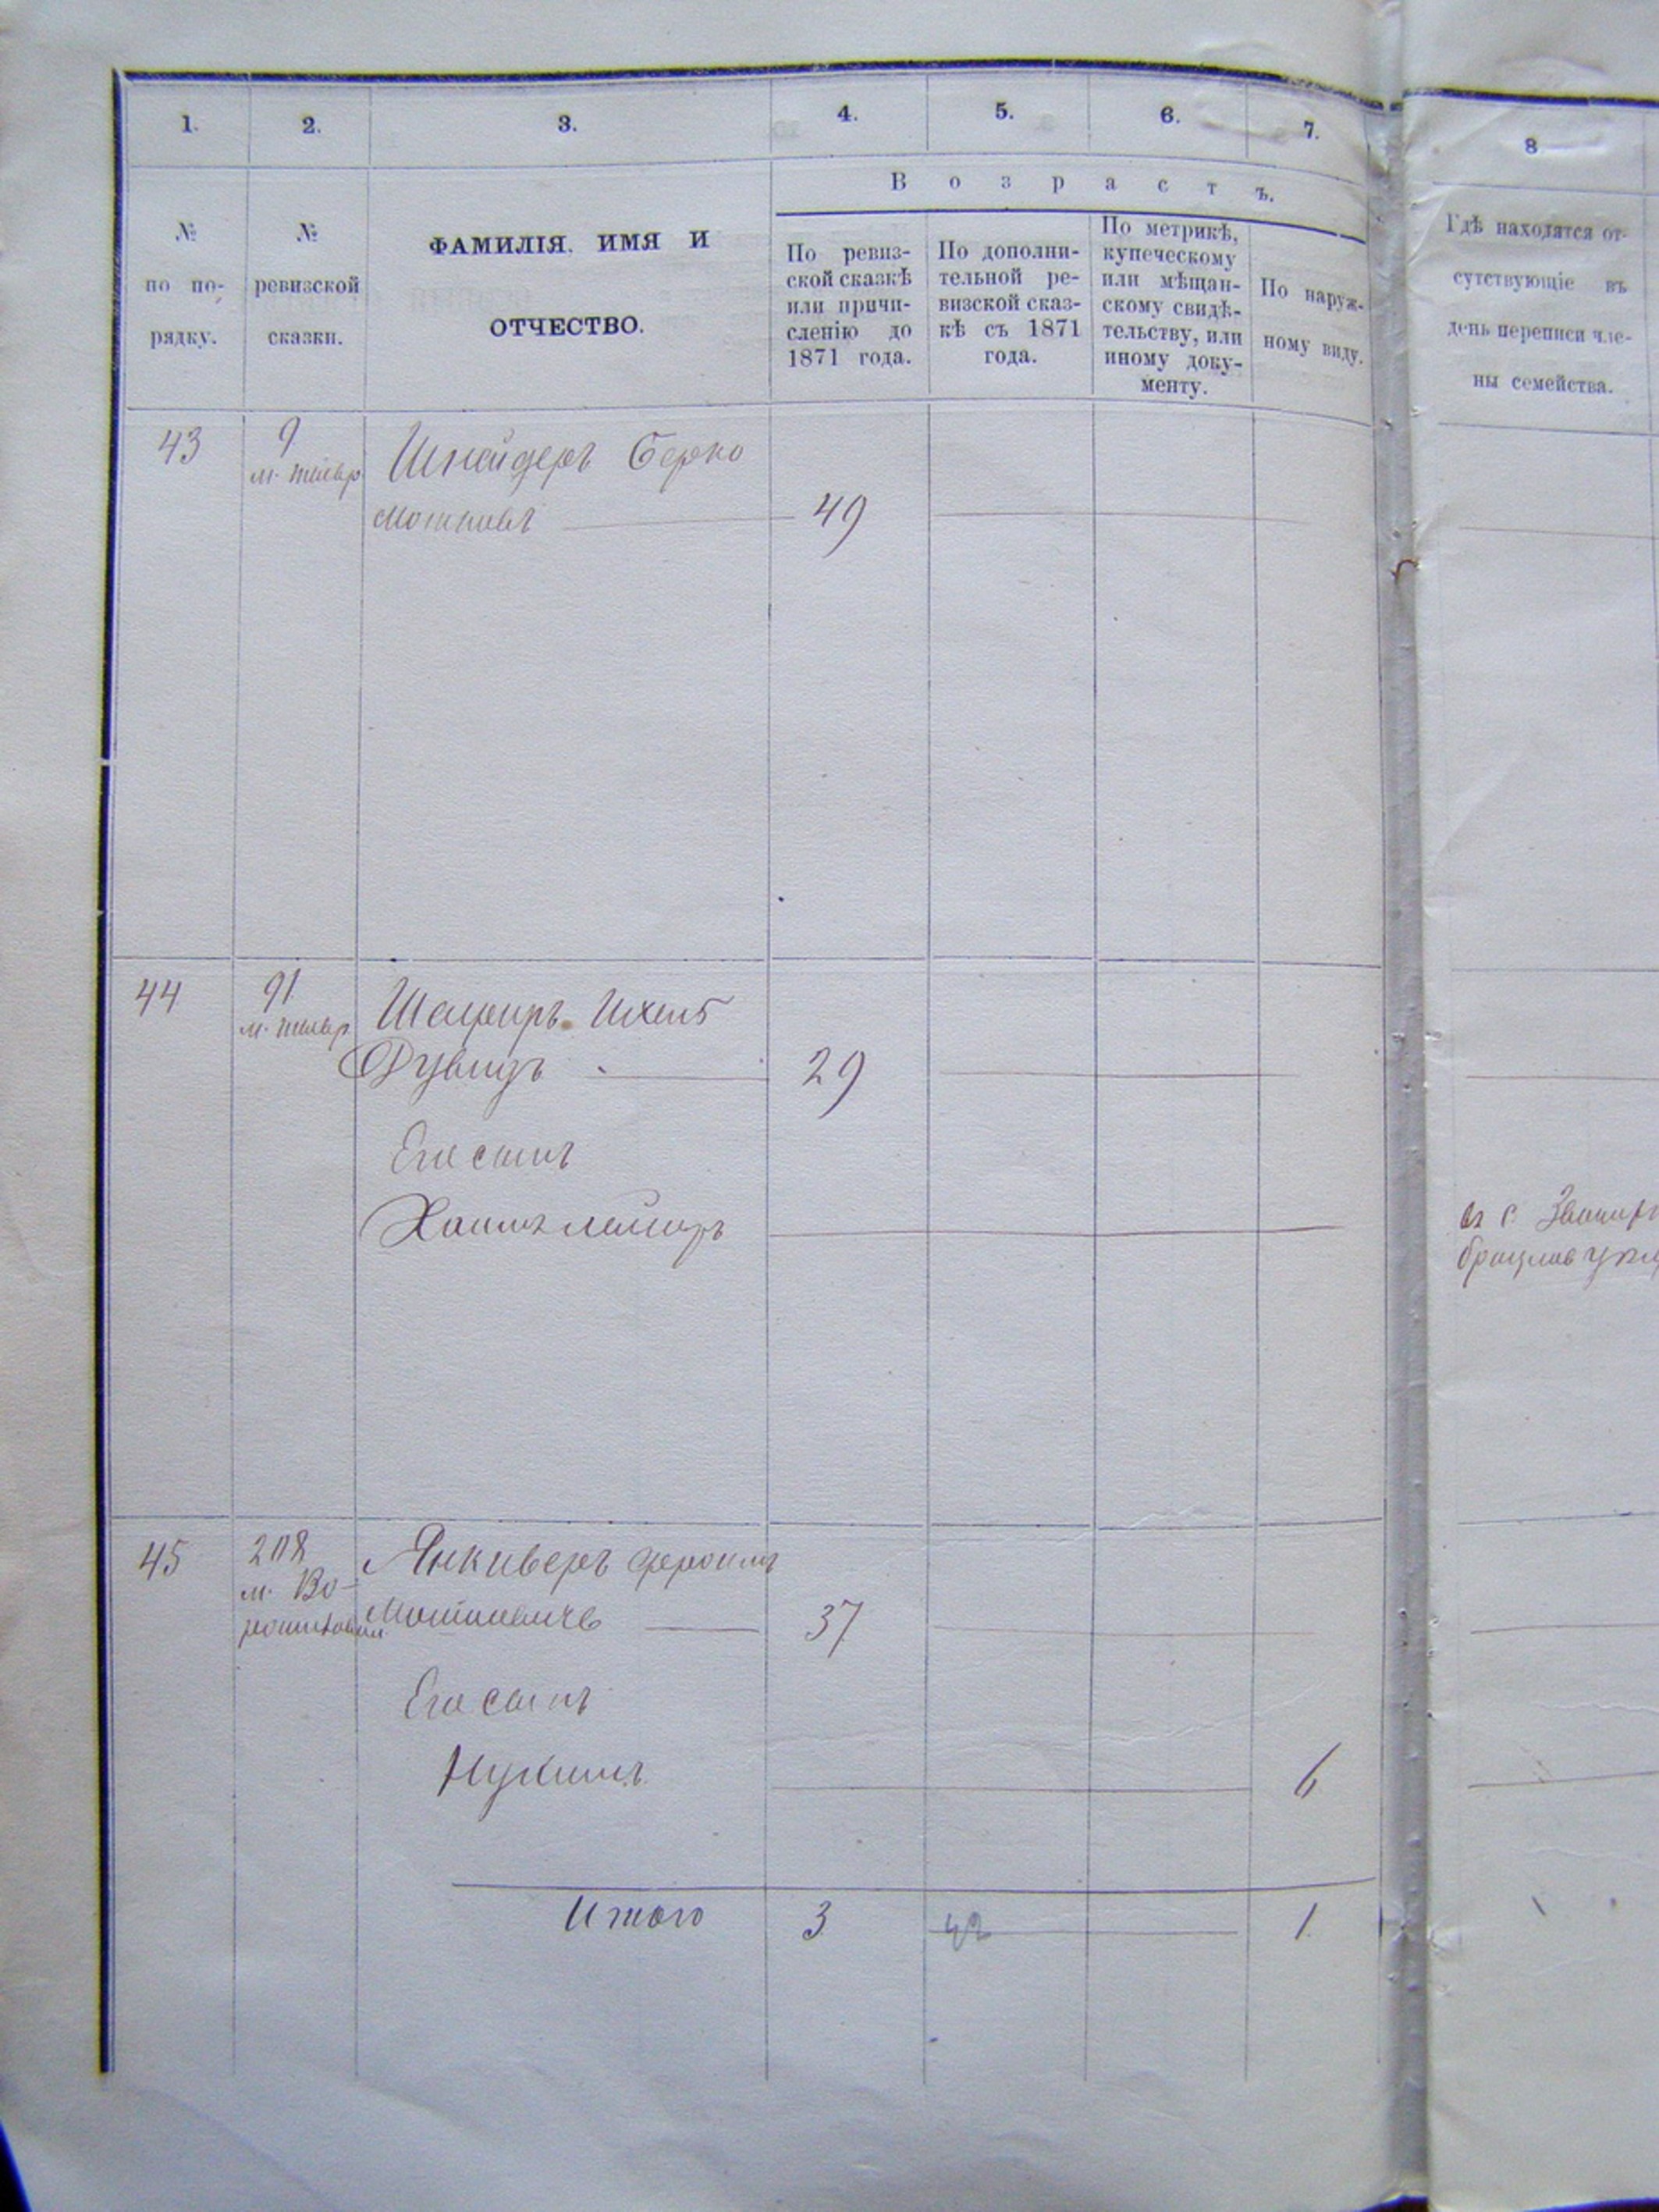 1. 2. 3. 4. 5. 6. 7. 8
Возрастъ.
№ по по-рядку.
№ ревизской сказки.
ФАМИЛІЯ. ИМЯ И
ОТЧЕСТВО.
По ревиз-
ской сказкѣ
или причи-
сленію до
1871 года.
По дополни-
тельной ре-
визской сказ-
кѣ съ 1871
года.
По метрикѣ,
купеческому
или мѣщан-
скому свидѣ-
тельству, или
иному доку-
менту.
По наруж-
ному виду.
Гдѣ находятся от-
сутствующіе въ
день переписи чле-
ны семейства.
43 9 Шнейдеръ Берко
м.
Мошковъ 49
44 91 Шафиръ Ихель
м.
Дувидъ 29
Его сынъ
Хаимъ Лейзеръ
въ с.
45 208 Янкиверъ Фроимъ
м. Во-
Мошковичъ 37
Его сынъ
Нухимъ 6
Итого 3 1